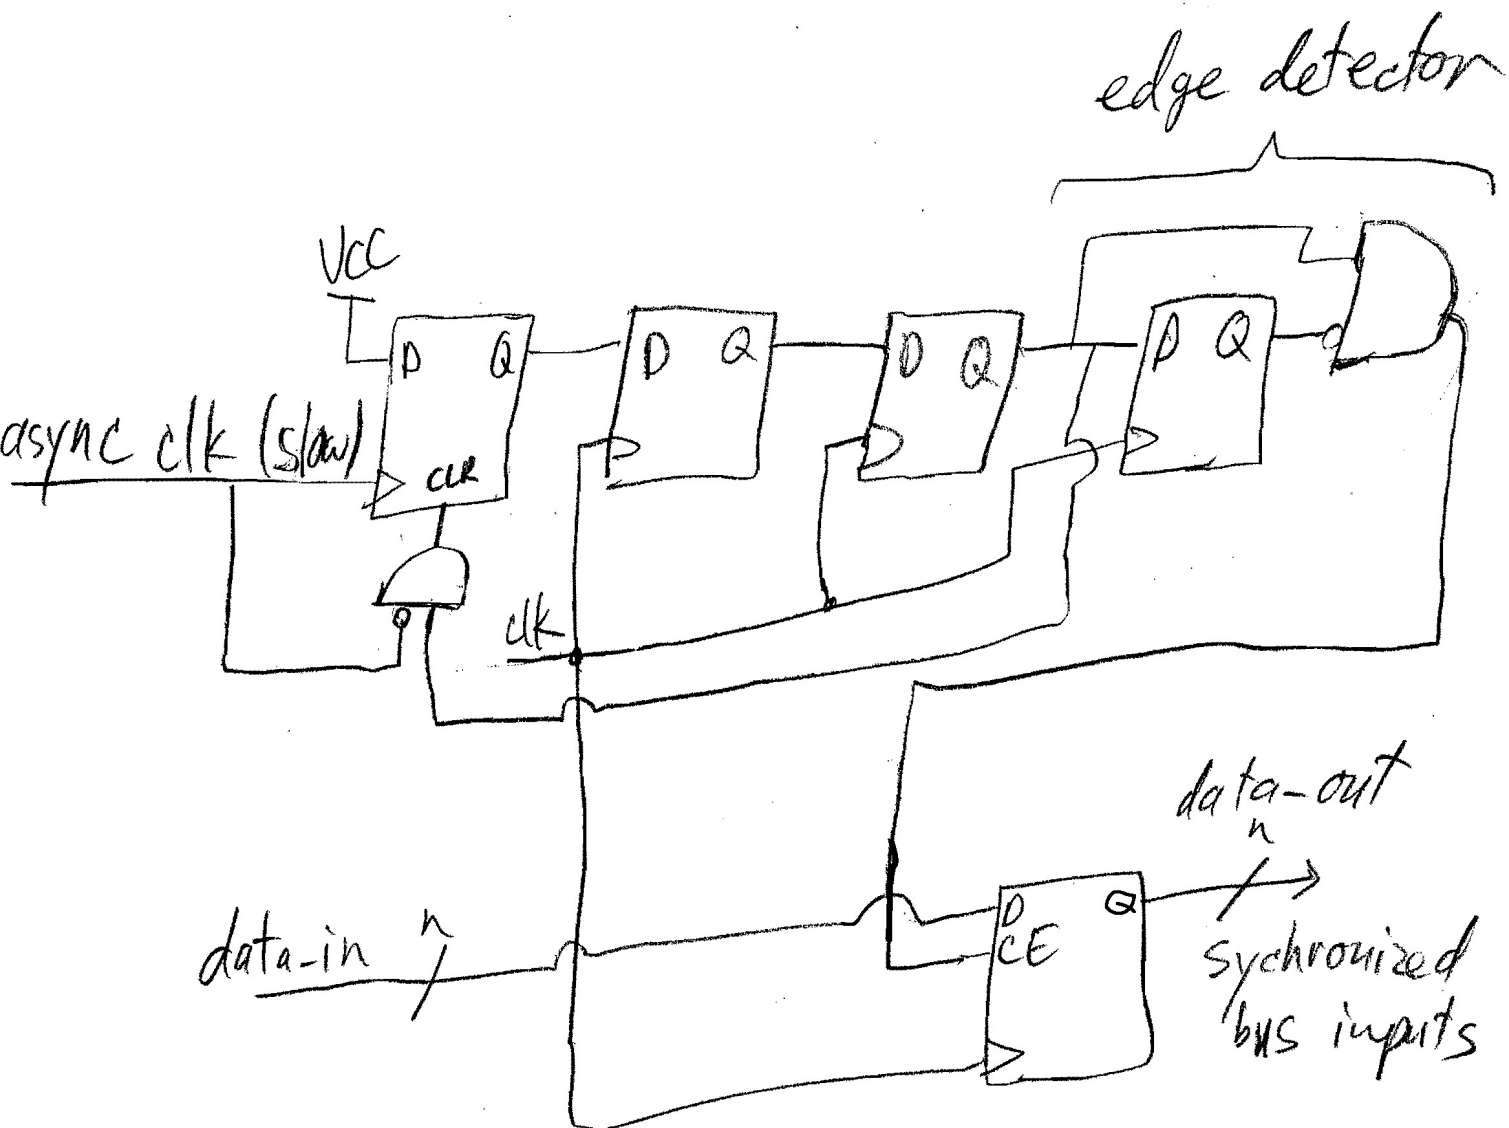 edge detector
VCC
D Q
D Q
D Q
D Q
async clk (slow)
CLR
clk
data-out
n
data-in
n
D Q
CE
sychronized
bus inputs